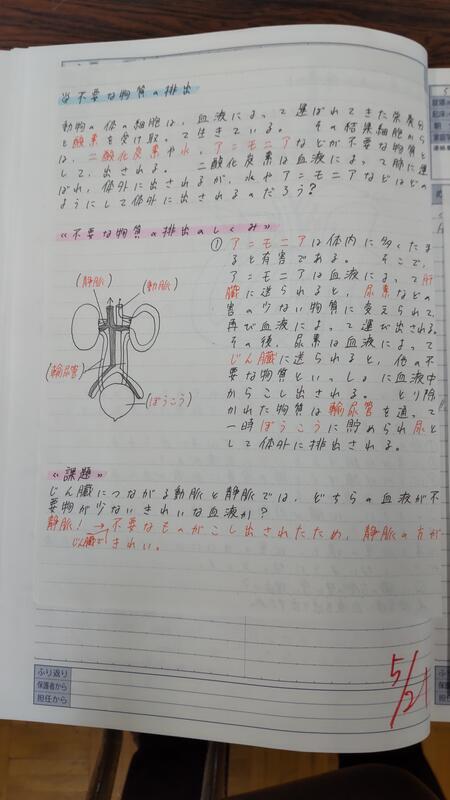 ☆不要な物質の排出
動物の体の細胞は、血液によって運ばれてきた栄養分
と酸素を受け取って生きている。 その結果細胞から
は、二酸化炭素や水、アンモニアなどが不要な物質と
して、出される。 二酸化炭素は血液によって肺に運
ばれ、体外に出されるが、水やアンモニアなどはどの
ようにして体外に出されるのだろう?
≪不要な物質の排出のしくみ≫
① アンモニアは体内に多くたま
ると有害である。 そこで、
アンモニアは血液によって肝
臓に送られると、尿素などの
害の少ない物質に変えられて、
再び血液によって運び出される。
その後、尿素は血液によって
じん臓に送られると、他の不
要な物質といっしょに血液中
からこし出される。 とり除
かれた物質は輸尿管を通って
一時ぼうこうに貯められ尿と
して体外に排出される。
(静脈)
(動脈)
(輸尿管)
(ぼうこう)
≪課題≫
じん臓につながる動脈と静脈では、どちらの血液が不
要物が少ないきれいな血液か?
静脈! → 不要なものがこし出されたため、静脈の方が
じん臓で きれい。
ふり返り
保護者から
担任から
5/21